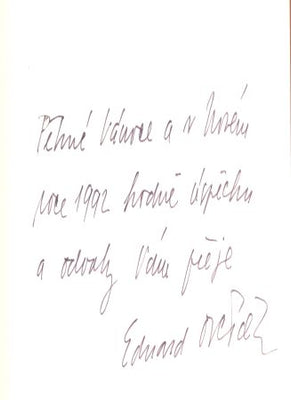 Pěkné Vánoce a v Novém
roce 1992 hodně úspěchu
a odvahy Vám přeje
Eduard